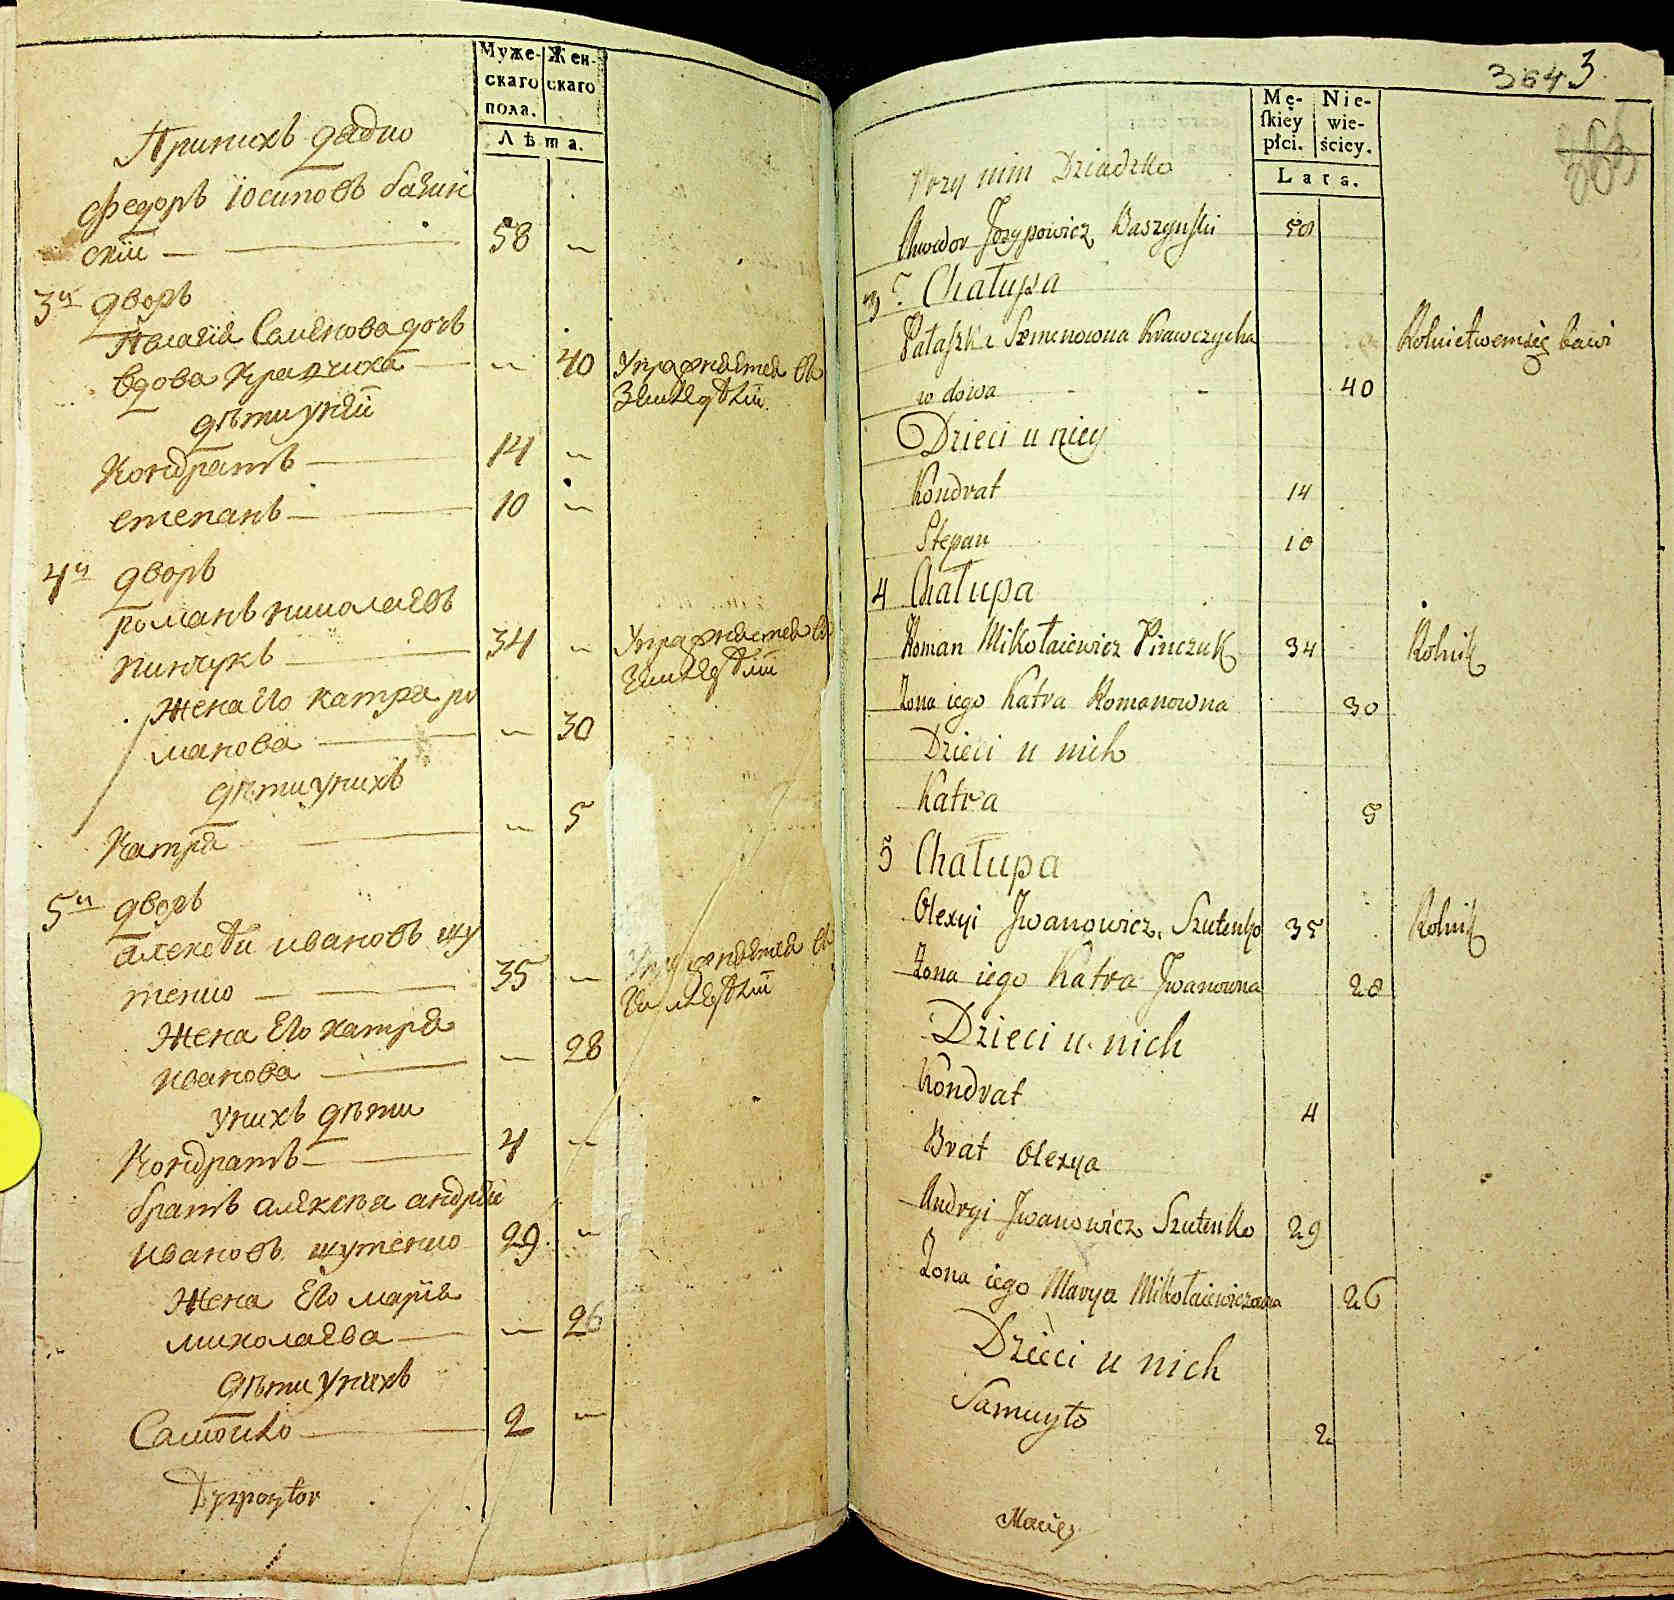 Муже-
скаго
пола.
Жен-
скаго
Лѣта.
При нихъ дядко
Федоръ Іосиповъ бачин
скій — 58 —
3й дворъ
Палагія Семенова дочь
вдова кравчиха — 40 Упражняется въ
земледѣліи
дѣти у ней
Кондратъ — 14 —
степанъ — 10 —
4й дворъ
романъ николаевъ
пинчукъ — 34 — Упражняется въ
земледѣліи
жена его катра ро
манова — 30
дѣти у нихъ
Катря — 5
5й дворъ
алексѣи ивановъ шу
тенко — 35 — Упражняется въ
земледѣліи
жена его катря
иванова — 28
у нихъ дѣти
Кондратъ — 4 —
братъ алексѣя андрѣй
ивановъ шутенко 29 —
жена его марія
миколаева — 26
дѣти у нихъ
Самойло — 2 —
3643
Mę-
skiey
płci.
Nie-
wie-
ściey.
Lata.
Przy nim Dziadzko
Chwedor Jozypowicz Baszynski 58
3 Chałupa
Pałaszka Semenowna Krawczycha Rolnictwem się bawi
wdowa 40
Dzieci u niey
Kondrat 14
Stepan 10
4 Chałupa
Roman Mikołaiewicz Pinczuk 34 Rolnik
Żona iego Katra Romanowna 30
Dzieci u nich
Katra 5
5 Chałupa
Olexyi Jwanowicz Szutenko 35 Rolnik
Żona iego Katra Jwanowna 28
Dzieci u nich
Kondrat 4
Brat Olexya
Andryi Jwanowicz Szutenko 29
Żona iego Marya Mikołaiewiczowna 26
Dzieci u nich
Samuyło 2